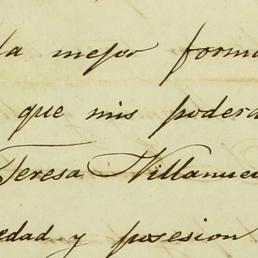 la mejor forma
que mis podera
Teresa Villanue
edad y posesion